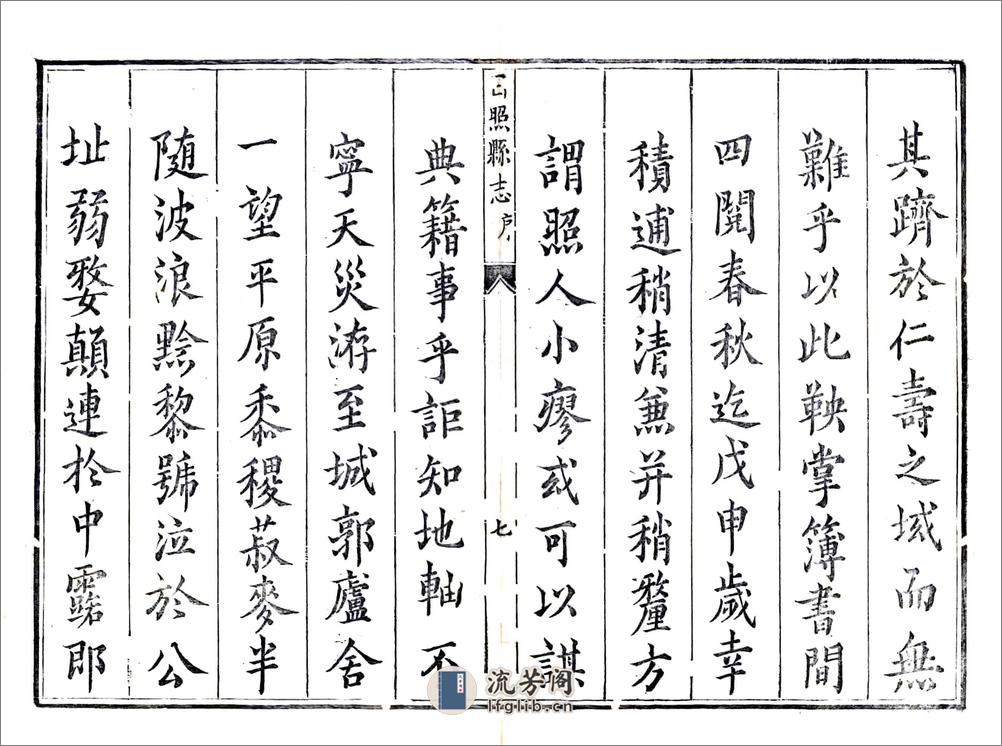 其躋於仁壽之域而無
難乎以此鞅掌簿書間
四閱春秋迄戊申歲幸
積逋稍清兼并稍釐方
謂照人小瘳或可以謀
日照縣志 序 七
典籍事乎詎知地軸不
寧天災洊至城郭廬舍
一望平原黍稷菽麥半
隨波浪黔黎號泣於公
址弱婺顛連於中露郎
流芳阁
lfglib.cn